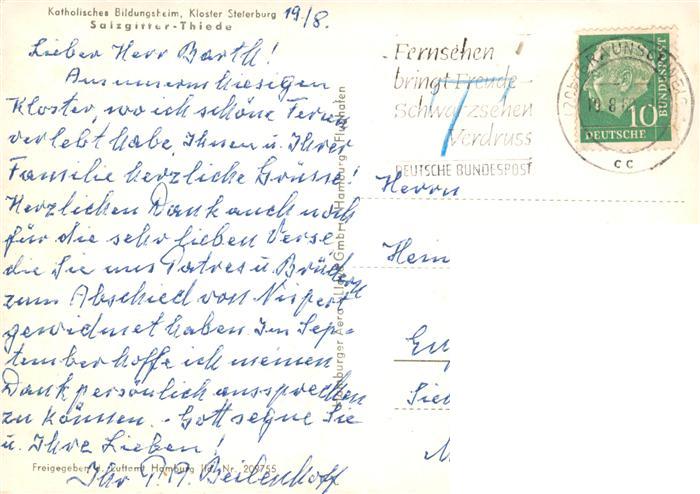 Katholisches Bildungsheim, Kloster Steterburg
Salzgitter-Thiede
19/8.
Lieber Herr Barth!
Aus unserm hiesigen
Kloster, wo ich schöne Ferien
verlebt habe, Ihnen u. Ihrer
Familie herzliche Grüsse!
Herzlichen Dank auch noch
für die sehr lieben Verse
die Sie uns Patres u. Brüdern
zum Abschied von Nispert
gewidmet haben. Im Sep-
tember hoffe ich meinen
Dank persönlich aussprechen
zu können. - Gott segne Sie
u. Ihre Lieben!
Ihr P. A. Beilenhoff
Freigegeben d. Luftamt Hamburg Nr. 209755
Hamburger Aero-Lloyd GmbH, Hamburg-Flughafen
Fernsehen
bringt Freude
Schwarzsehen
Verdruss
DEUTSCHE BUNDESPOST
BRAUNSCHWEIG
cc
10
DEUTSCHE
BUNDESPOST
Herrn
Hein
Sie